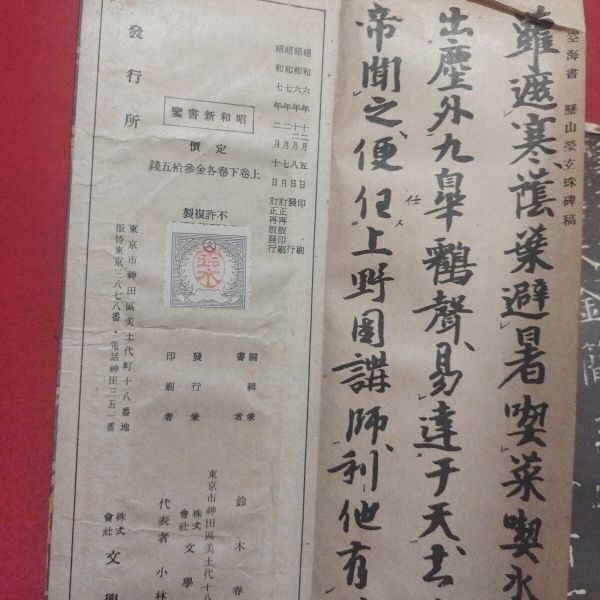 空海書 歷山瑩玄珠碑稿
蘿遮寒蔭葉避暑喫菜喫水
出塵外九皐鸖聲易達于天去
帝聞之便任上野国講師利他有
任
昭和六年十二月五日印刷
昭和六年十二月八日發行
昭和七年二月十日訂正再版印刷
昭和七年二月十日訂正再版發行
昭和新書鑒
定價
上卷下卷各金參拾五錢
不許複製
鈴木
編輯兼書者 鈴木春
發行兼印刷者
東京市神田區美土代町十八
株式會社 文學
代表者 小林
發行所
東京市神田區美土代町十八番地
振替東京三八七八番・電話神田三五一番
株式會社 文興